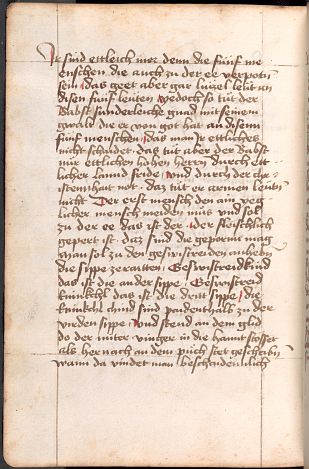 Ir sind ettleich mer denn die fünf me
enschen die auch zu der ee verpotn
sein das geet aber gar lützel leüt an
disen fünf leüten yedoch so tüt der
Babst sunderleiche gnad mit seinem
gwalt die er von got hat an disenn
fünf menschen das man sy ettlichs
nicht schaidet das tüt aber der babst
nür ettlichen hohen herrn durch ett
licher lannd fride vnd durch der chri
stenhait not daz tüt er armen leütn
nicht Der erst mensch den ain yeg
licher mensch meiden müs vnd sol
zu der ee das ist der der fleischlich
gepert ist daz sind die geporn mag
man sol zu den geswistreiden anhebn
die sippe zeraitten Geswistreidkind
das ist die ander sippe Geswistreid
das ist die dritt sippe die
chind sind
vierden sippe vnd stend an dem glid
do der miter vinger in die hannt stosset
als hernach an dem püch stet geschribn
wann da vindet man beschaidenlich